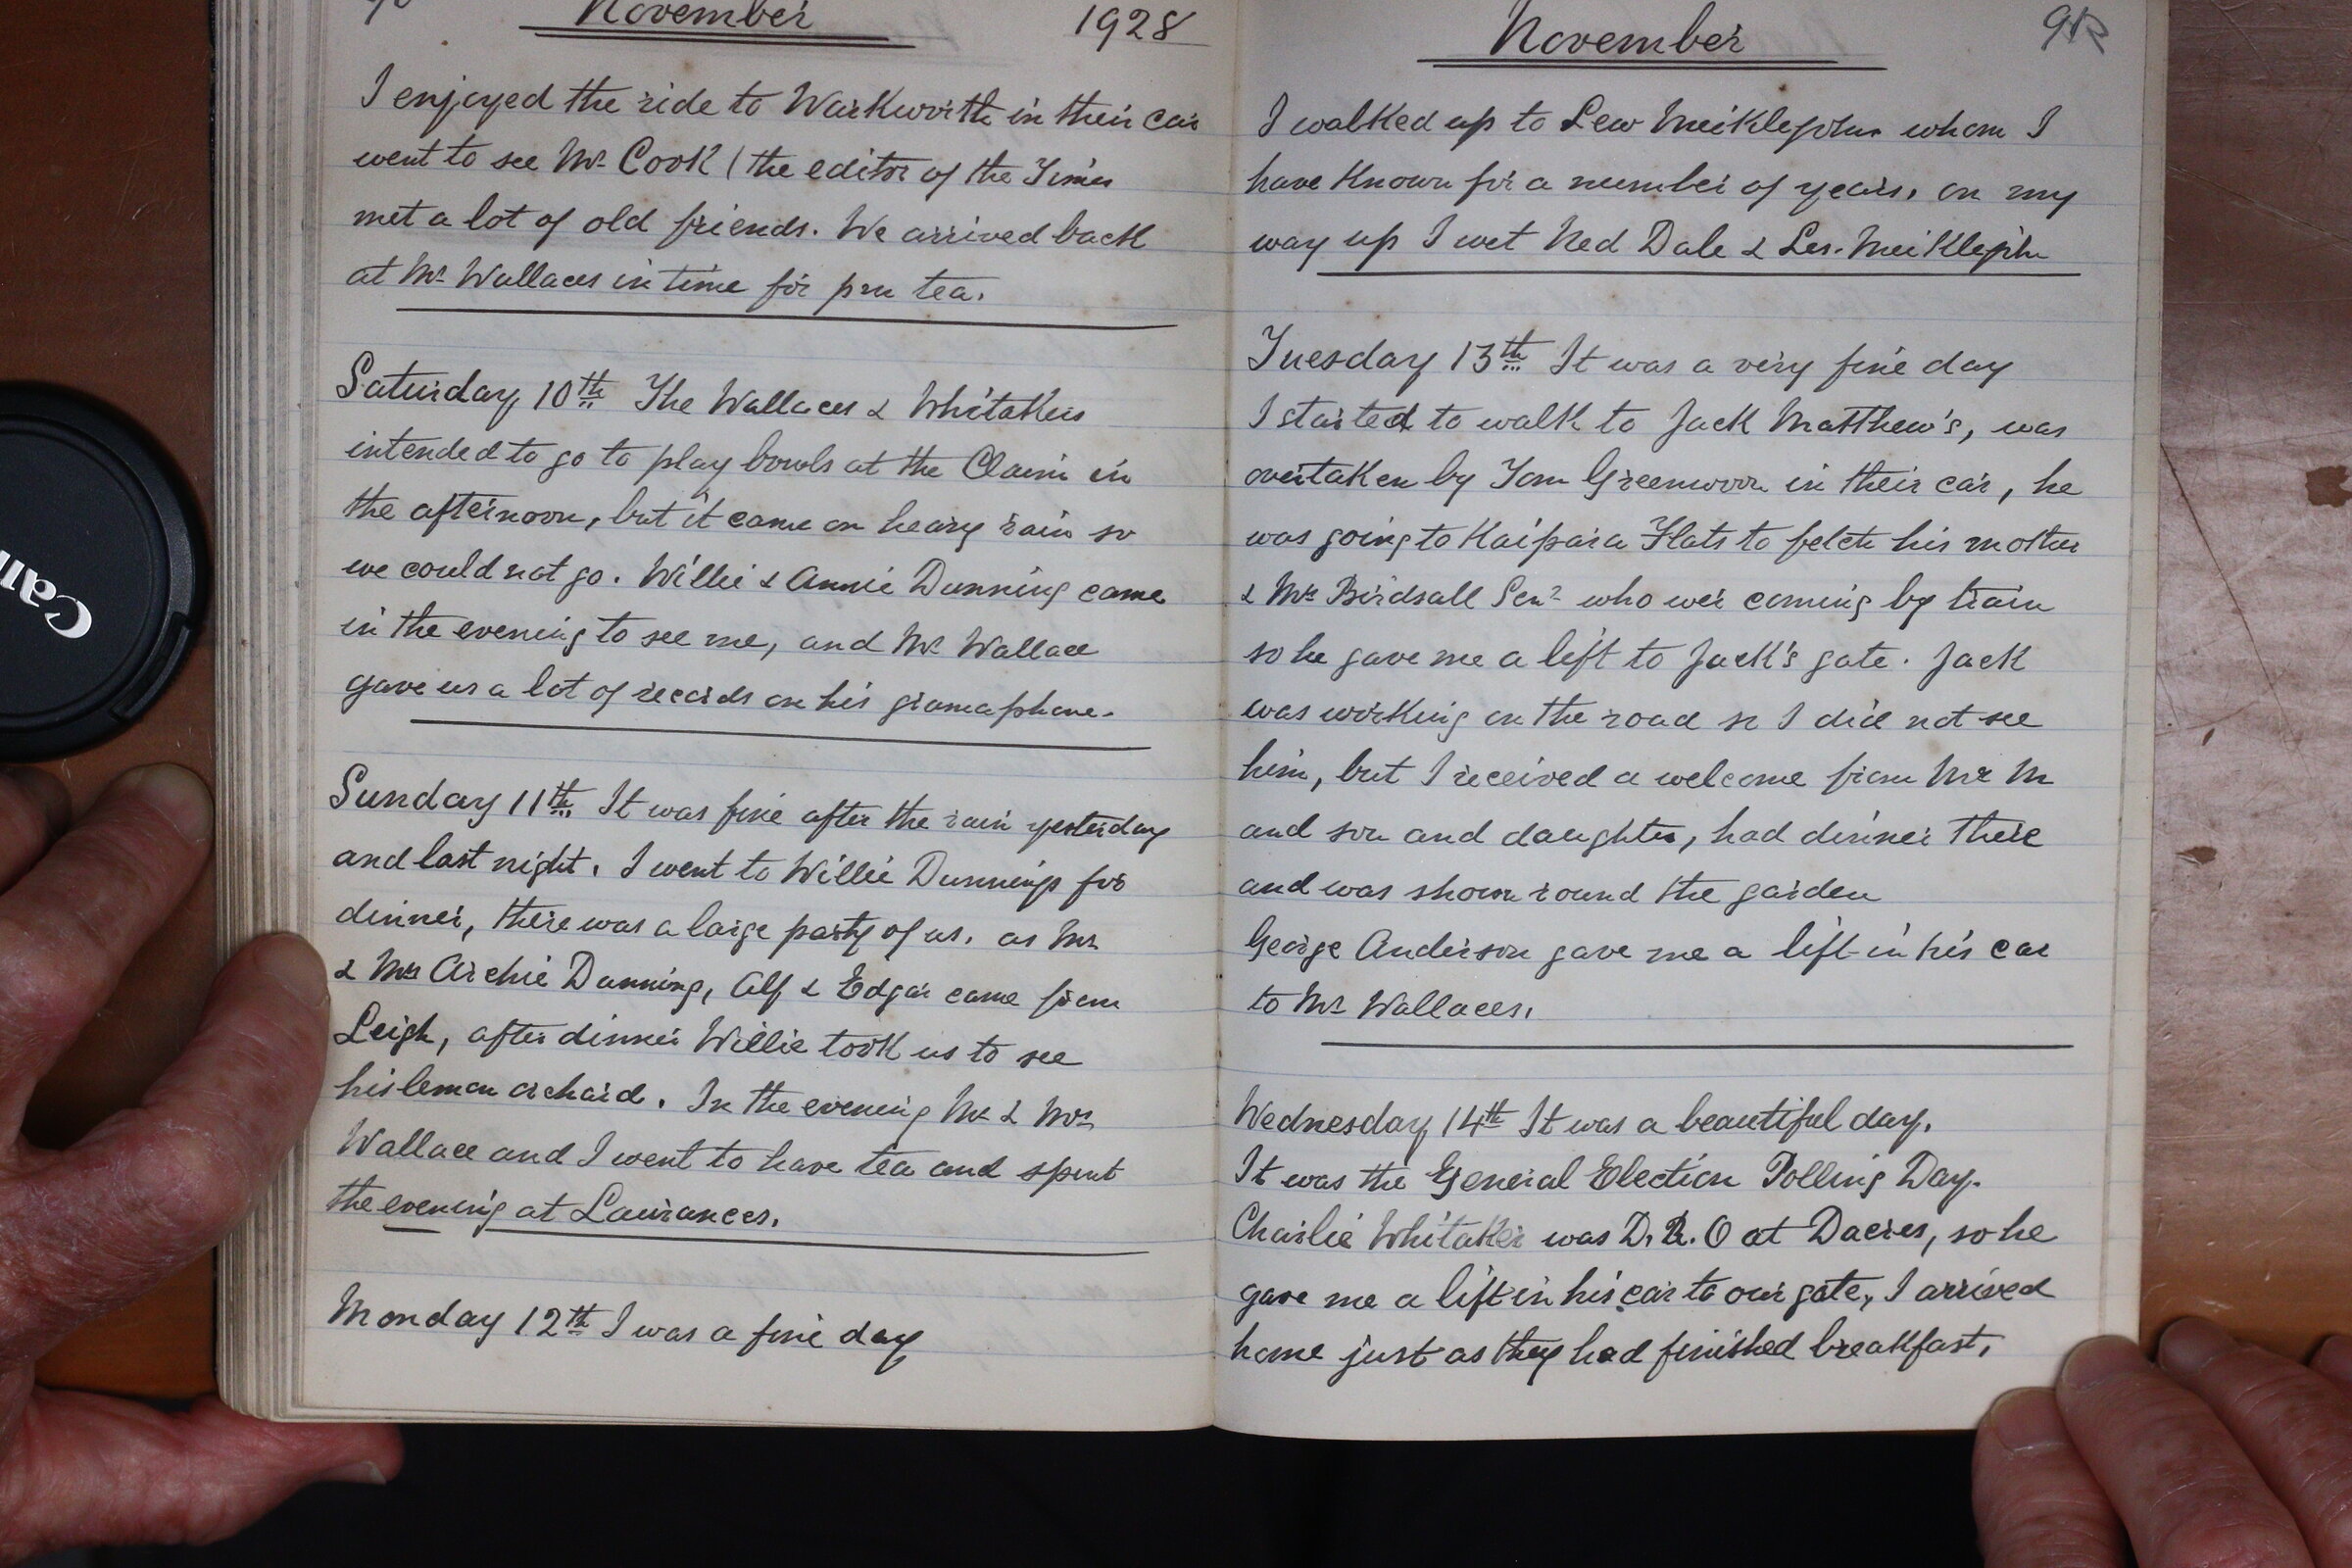 November 1928
I enjoyed the ride to Warkworth in their car
went to see Mr Cook (the editor of the Times
met a lot of old friends. We arrived back
at Mr Wallaces in time for pm tea.
Saturday 10th The Wallaces & Whitakers
intended to go to play bowls at the Claim in
the afternoon, but it came on heavy rain so
we could not go. Willie & Annie Dunning came
in the evening to see me, and Mr Wallace
gave us a lot of records on his gramaphone.
Sunday 11th It was fine after the rain yesterday
and last night. I went to Willie Dunnings for
dinner, there was a large party of us. as Mr
& Mrs Archie Dunning, Alf & Edgar came from
Leigh, after dinner Willie took us to see
his lemon orchard. In the evening Mr & Mrs
Wallace and I went to have tea and spent
the evening at Laurances.
Monday 12th I was a fine day
November
I walked up to Lew Meiklejohn whom I
have known for a number of years. on my
way up I met Ned Dale & Les. Meiklejohn
Tuesday 13th It was a very fine day
I started to walk to Jack Matthew's, was
overtaken by Tom Greenwood in their car, he
was going to Kaipara Flats to fetch his mother
& Mrs Birdsall Senr who were coming by train
so he gave me a left to Jack's gate. Jack
was working on the road so I did not see
him, but I received a welcome from Mrs M
and son and daughter, had dinner there
and was shown round the garden
George Anderson gave me a lift in his car
to Mr Wallaces.
Wednesday 14th It was a beautiful day.
It was the General Election Polling Day.
Charlie Whitaker was D.R.O at Dacres, so he
gave me a lift in his car to our gate, I arrived
home just as they had finished breakfast.
Can